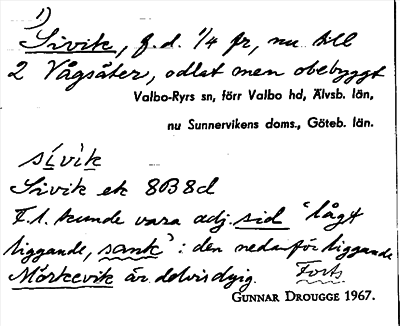 1)
Sivik, f.d. 1/4 fr, nu till
2 Vågsäter, odlat men obebyggt
Valbo-Ryrs sn, förr Valbo hd, Älvsb. län,
nu Sunnervikens doms., Göteb. län.
sívìk
Sivik ek 8B8d
F.l. kunde vara adj. sid "lågt
liggande, sank": den nedanför liggande
Mörkevik är delvis dyig. Forts
GUNNAR DROUGGE 1967.